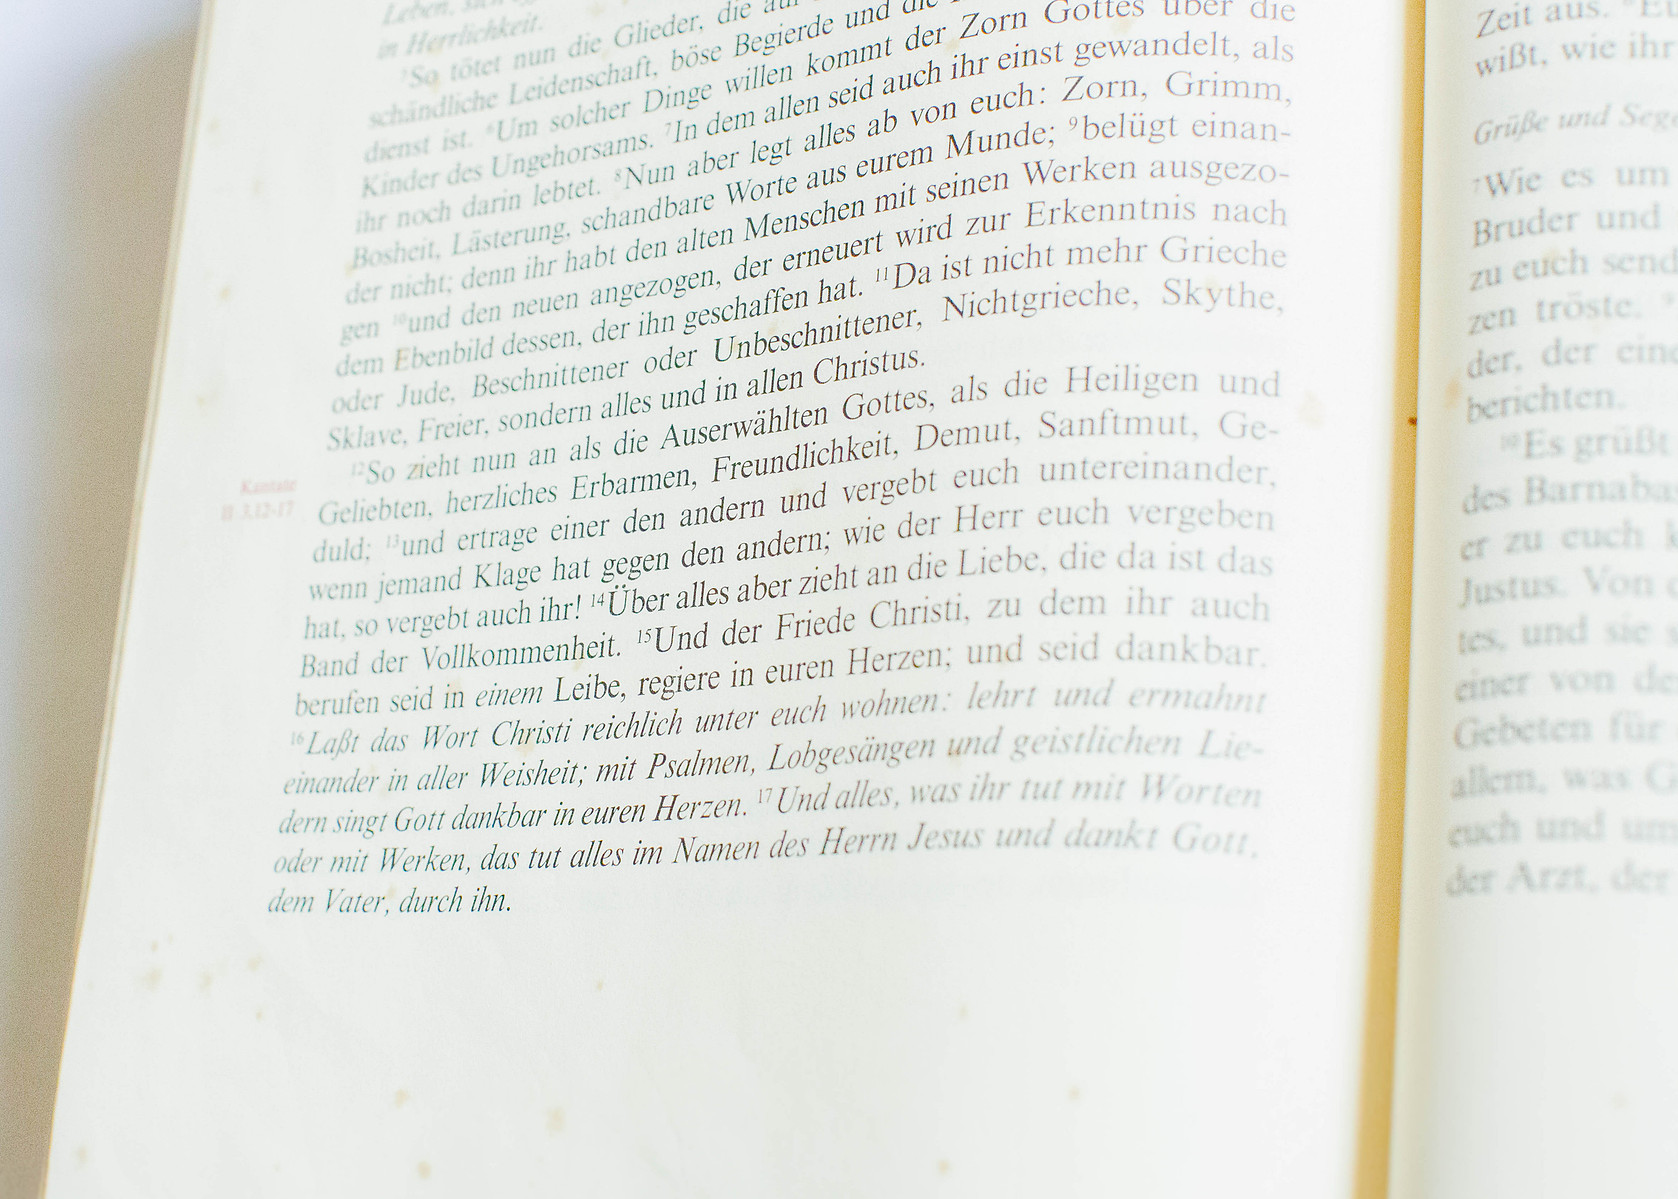 Leben, sich
in Herrlichkeit.
⁵So tötet nun die Glieder, die auf
schändliche Leidenschaft, böse Begierde und die
dienst ist. ⁶Um solcher Dinge willen kommt der Zorn Gottes über die
Kinder des Ungehorsams. ⁷In dem allen seid auch ihr einst gewandelt, als
ihr noch darin lebtet. ⁸Nun aber legt alles ab von euch: Zorn, Grimm,
Bosheit, Lästerung, schandbare Worte aus eurem Munde; ⁹belügt einan-
der nicht; denn ihr habt den alten Menschen mit seinen Werken ausgezo-
gen ¹⁰und den neuen angezogen, der erneuert wird zur Erkenntnis nach
dem Ebenbild dessen, der ihn geschaffen hat. ¹¹Da ist nicht mehr Grieche
oder Jude, Beschnittener oder Unbeschnittener, Nichtgrieche, Skythe,
Sklave, Freier, sondern alles und in allen Christus.
Kantate
II 3,12-17
¹²So zieht nun an als die Auserwählten Gottes, als die Heiligen und
Geliebten, herzliches Erbarmen, Freundlichkeit, Demut, Sanftmut, Ge-
duld; ¹³und ertrage einer den andern und vergebt euch untereinander,
wenn jemand Klage hat gegen den andern; wie der Herr euch vergeben
hat, so vergebt auch ihr! ¹⁴Über alles aber zieht an die Liebe, die da ist das
Band der Vollkommenheit. ¹⁵Und der Friede Christi, zu dem ihr auch
berufen seid in einem Leibe, regiere in euren Herzen; und seid dankbar.
¹⁶Laßt das Wort Christi reichlich unter euch wohnen: lehrt und ermahnt
einander in aller Weisheit; mit Psalmen, Lobgesängen und geistlichen Lie-
dern singt Gott dankbar in euren Herzen. ¹⁷Und alles, was ihr tut mit Worten
oder mit Werken, das tut alles im Namen des Herrn Jesus und dankt Gott,
dem Vater, durch ihn.
Zeit aus.
wißt, wie ihr
Grüße und
⁷Wie es um
Bruder und
zu euch send
zen tröste.
der, der eine
berichten.
¹⁰Es grüßt
des Barnaba
er zu euch
Justus. Von
tes, und sie
einer von de
Gebeten für
allem, was
euch und um
der Arzt, der